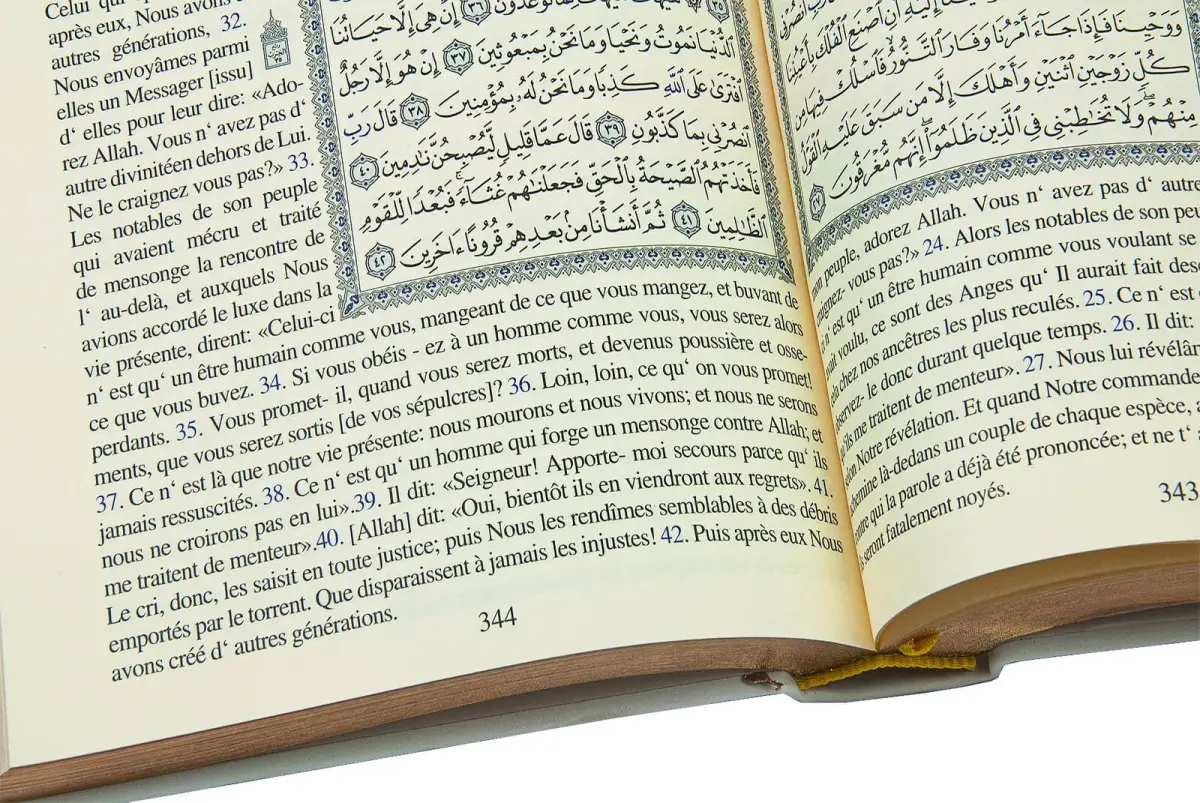 Celui qui
après eux, Nous avons
autres générations, 32.
Nous envoyâmes parmi
elles un Messager [issu]
d‘ elles pour leur dire: «Ado-
rez Allah. Vous n‘ avez pas d‘
autre divinitéen dehors de Lui.
Ne le craignez vous pas?» 33.
Les notables de son peuple
qui avaient mécru et traité
de mensonge la rencontre de
l‘ au-delà, et auxquels Nous
avions accordé le luxe dans la
vie présente, dirent: «Celui-ci
تُوعَدُونَ ٣٦ إِنْ هِيَ إِلَّا حَيَاتُنَا
ٱلدُّنْيَا نَمُوتُ وَنَحْيَا وَمَا نَحْنُ بِمَبْعُوثِينَ ٣٧ إِنْ هُوَ إِلَّا رَجُلٌ
ٱفْتَرَىٰ عَلَى ٱللَّهِ كَذِبًا وَمَا نَحْنُ لَهُۥ بِمُؤْمِنِينَ ٣٨ قَالَ رَبِّ
ٱنصُرْنِى بِمَا كَذَّبُونِ ٣٩ قَالَ عَمَّا قَلِيلٍ لَّيُصْبِحُنَّ نَٰدِمِينَ ٤٠
فَأَخَذَتْهُمُ ٱلصَّيْحَةُ بِٱلْحَقِّ فَجَعَلْنَٰهُمْ غُثَآءً ۚ فَبُعْدًا لِّلْقَوْمِ
ٱلظَّٰلِمِينَ ٤١ ثُمَّ أَنشَأْنَا مِنۢ بَعْدِهِمْ قُرُونًا ءَاخَرِينَ ٤٢
n‘ est qu‘ un être humain comme vous, mangeant de ce que vous mangez, et buvant de
ce que vous buvez. 34. Si vous obéis - ez à un homme comme vous, vous serez alors
perdants. 35. Vous promet- il, quand vous serez morts, et devenus poussière et osse-
ments, que vous serez sortis [de vos sépulcres]? 36. Loin, loin, ce qu‘ on vous promet!
37. Ce n‘ est là que notre vie présente: nous mourons et nous vivons; et nous ne serons
jamais ressuscités. 38. Ce n‘ est qu‘ un homme qui forge un mensonge contre Allah; et
nous ne croirons pas en lui».39. Il dit: «Seigneur! Apporte- moi secours parce qu‘ ils
me traitent de menteur».40. [Allah] dit: «Oui, bientôt ils en viendront aux regrets». 41.
Le cri, donc, les saisit en toute justice; puis Nous les rendîmes semblables à des débris
emportés par le torrent. Que disparaissent à jamais les injustes! 42. Puis après eux Nous
avons créé d‘ autres générations.
344
إِلَيْهِ أَنِ ٱصْنَعِ ٱلْفُلْكَ بِأَعْيُنِنَا
وَوَحْيِنَا فَإِذَا جَآءَ أَمْرُنَا وَفَارَ ٱلتَّنُّورُ فَٱسْلُكْ فِيهَا مِن
كُلٍّ زَوْجَيْنِ ٱثْنَيْنِ وَأَهْلَكَ إِلَّا مَن سَبَقَ عَلَيْهِ ٱلْقَوْلُ
مِنْهُمْ ۖ وَلَا تُخَٰطِبْنِى فِى ٱلَّذِينَ ظَلَمُوٓا۟ ۖ إِنَّهُم مُّغْرَقُونَ ٢٧
peuple, adorez Allah. Vous n‘ avez pas d‘ autre
vous pas?» 24. Alors les notables de son peu
n‘ est qu‘ un être humain comme vous voulant se
voulu, ce sont des Anges qu‘ Il aurait fait desc
chez nos ancêtres les plus reculés. 25. Ce n‘ est
le donc durant quelque temps. 26. Il dit:
ils me traitent de menteur». 27. Nous lui révélâm
Notre révélation. Et quand Notre commande
là-dedans un couple de chaque espèce,
qui la parole a déjà été prononcée; et ne t‘
seront fatalement noyés.
343